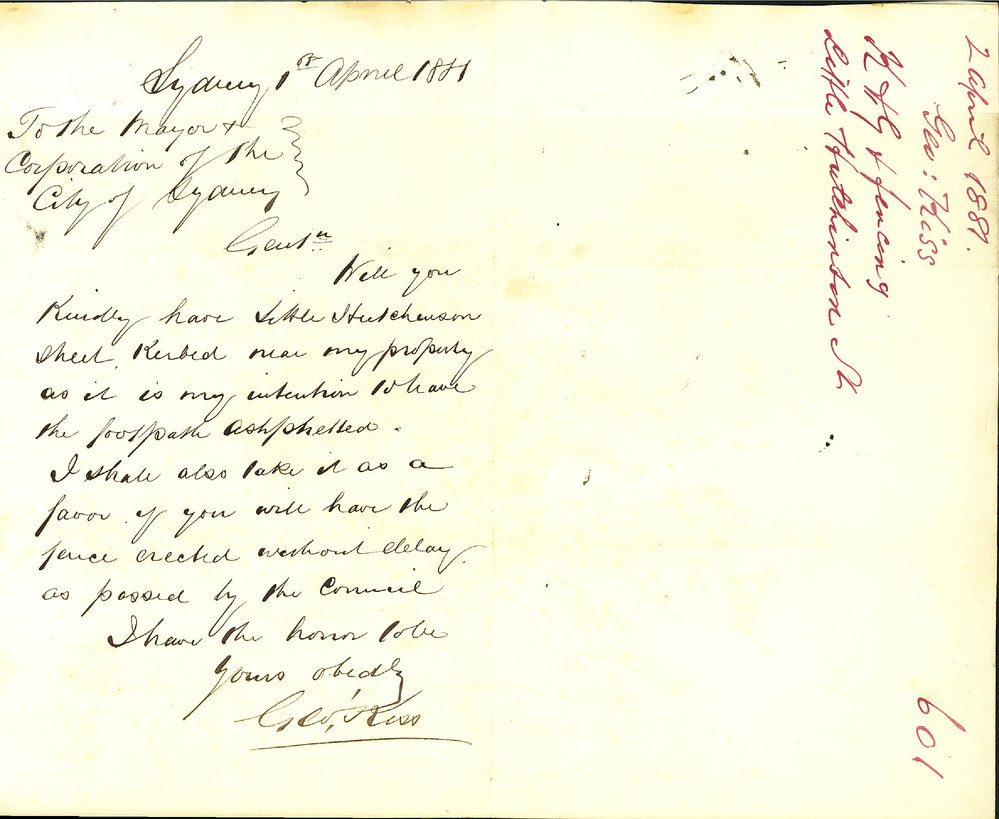 Sydney 1st April 1881
To the Mayor &
Corporation of the
City of Sydney
Gentn
Will you
Kindly have Little Hutchenson
street Kerbed near my property
as it is my intention to have
the footpath Ashphelted.
I shall also take it as a
favor if you will have the
fence erected without delay
as passed by the Council
I have the honor to be
Yours obedly
Geo, Kiss
2 April 1881.
Geo: Kiss
K & G & fencing
Little Hutchinson St
601